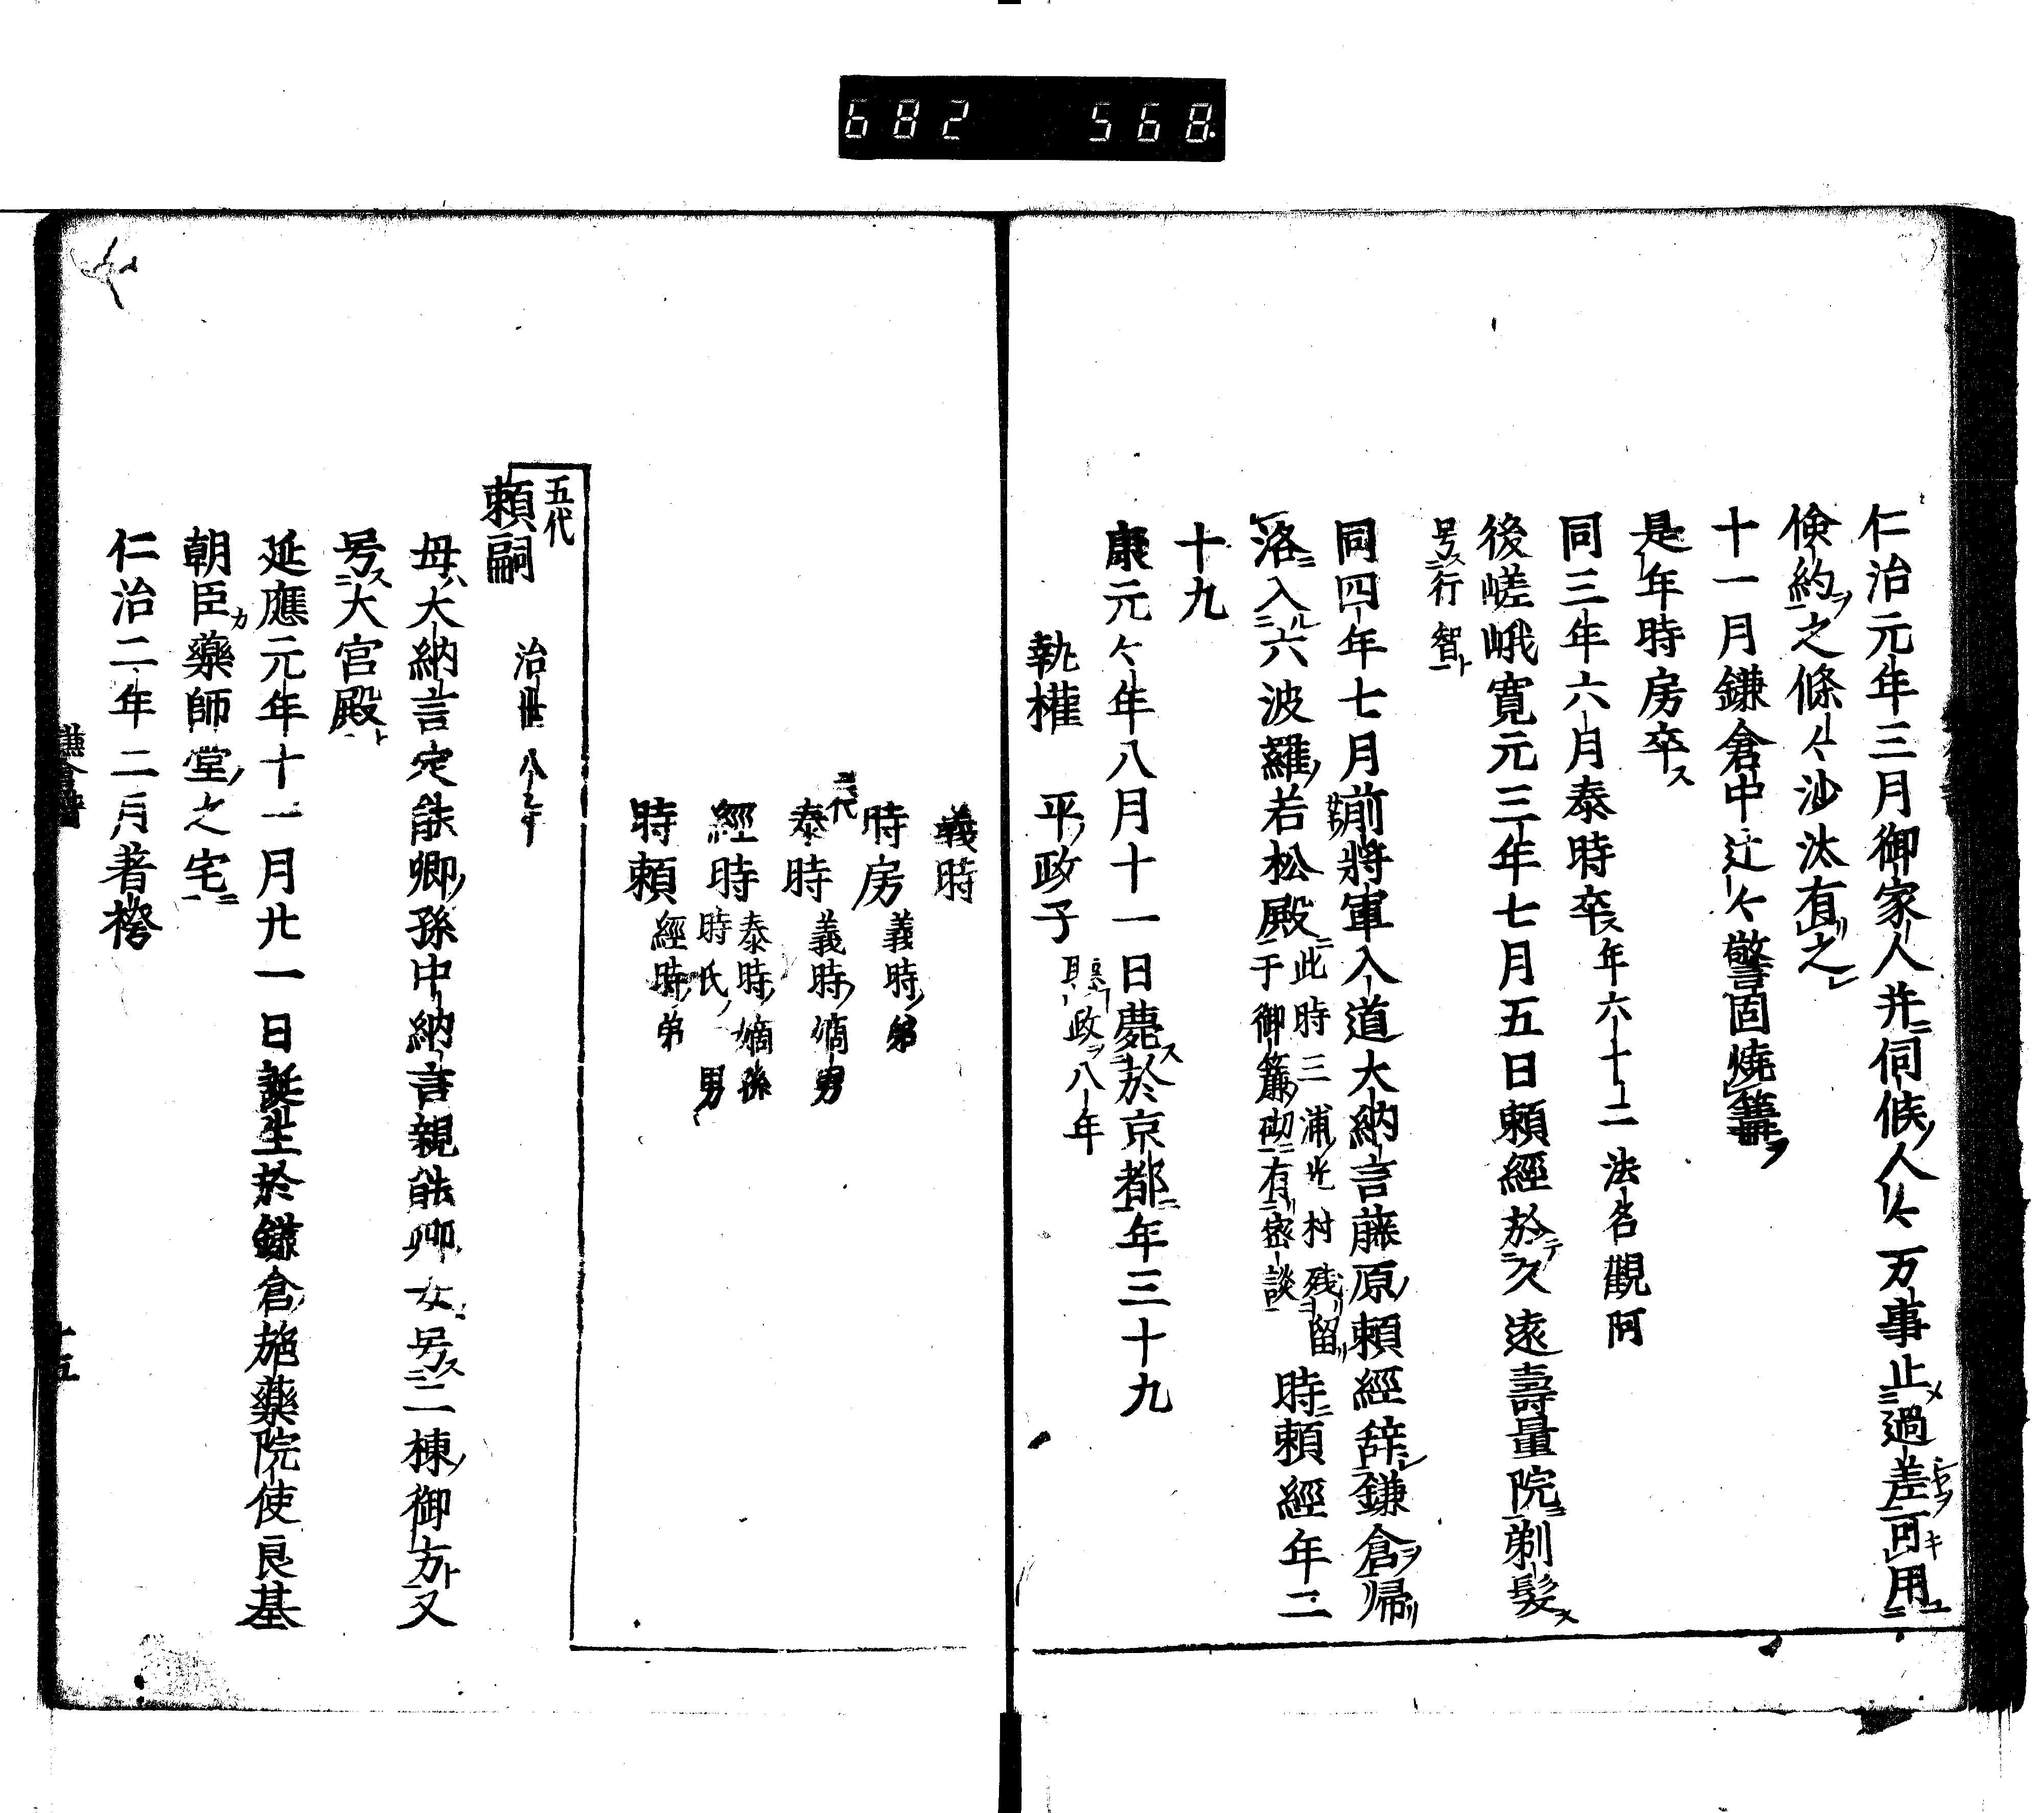 682 568
仁治元年三月御家人并伺候人〻万事止過差可用
倹約之條〻沙汰有之
十一月鎌倉中辻〻警固焼篝
是年時房卒
同三年六月泰時卒年六十二法名觀阿
後嵯峨寛元三年七月五日頼經於久遠壽量院剃髮
号行智
同四年七月前將軍入道大納言藤原頼經辞鎌倉帰
洛入六波羅若松殿此時三浦光村残留
于御簾砌有密談時頼經年二
十九
康元〻年八月十一日薨於京都年三十九
執權 平政子 聴政八年
義時
時房 義時弟
泰時 義時嫡男
經時 泰時嫡孫
時氏男
時頼 經時弟
五代
頼嗣 治世八年
母大納言定能卿孫中納言親能卿女号二棟御方又
号大宮殿
延應元年十一月廿一日誕生於鎌倉施藥院使良基
朝臣藥師堂之宅
仁治二年二月著袴